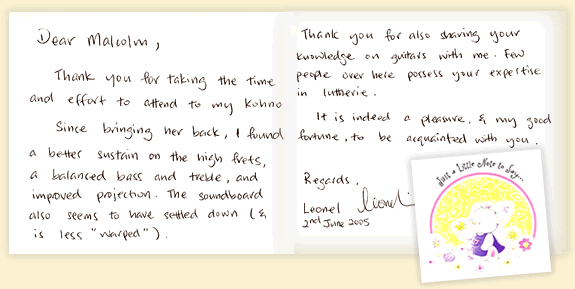 Dear Malcolm,
Thank you for taking the time
and effort to attend to my Kohno
Since bringing her back, I found
a better sustain on the high frets,
a balanced bass and treble, and
improved projection. The soundboard
also seems to have settled down (&
is less "warped").
Thank you for also sharing your
knowledge on guitars with me. Few
people over here possess your expertise
in lutherie.
It is indeed a pleasure, & my good
fortune, to be acquainted with you.
Regards,
Leonel Leonel
2nd June 2005
Just a Little Note to Say...